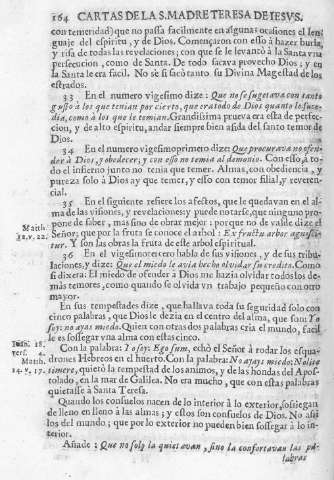 164 CARTAS DE LA S. MADRE TERESA DE IESVS.
con temeridad) que no passa facilmente en algunas ocasiones el len-
guaje del espiritu, y de Dios. Començaron con esso à hazer burla,
y risa de todas las revelaciones; con que se le levantò à la Santa vna
persecucion, como de Santa. De todo sacava provecho Dios; y en
la Santa le era facil. No sè si sacò tanto su Divina Magestad de los
estrados.
33 En el numero vigesimo dize: Que no se sugetava con tanto
gusto à los que tenian por cierto, que era todo de Dios quanto la suce-
dia, como à los que le temian. Grandissima prueva era esta de perfec-
cion, y de alto espiritu, andar siempre bien asida del santo temor de
Dios.
34 En el numero vigesimoprimero dize: Que procurava no ofen-
der à Dios, y obedecer; y con esso no temia al demonio. Con esso, à to-
do el infierno junto no tenia que temer. Almas, con obediencia, y
pureza solo à Dios ay que temer, y esso con temor filial, y reveren-
cial.
35 En el siguiente refiere los afectos, que le quedavan en el al-
ma de las visiones, y revelaciones; y puede notarse, que ninguno pro-
pone de saber, mas sino de obrar mejor: porque no de valde dize el
Matth. 12. v. 22.
Señor; que por la fruta se conoce el arbol: Ex fructu arbor agnosci-
tur. Y son las obras la fruta de este arbol espiritual.
36 En el vigesimotercero habla de sus visiones, y de sus tribu-
laciones, y dize: Que el miedo le avia hecho olvidar su credito. Como
si dixera: El miedo de ofender à Dios me hazia olvidar todos los de-
màs temores, como quando se olvida vn trabajo pequeño con otro
mayor.
En sus tempestades dize, que hallava toda su seguridad solo con
cinco palabras, que Dios le dezia en el centro del alma, que son: Yo
soy: no ayas miedo. Quien con otras dos palabras cria el mundo, facil
le es sossegar vna alma con estas cinco.
Ioan. 18.
Con la palabra: Yo soy: Ego sum, echò el Señor à rodar los esqua-
drones Hebreos en el huerto. Con la palabra: No ayas miedo: Nolite
Matth. 14. v. 27.
timere, quietò la tempestad de los animos, y de las hondas del Apos-
tolado, en la mar de Galilea. No era mucho, que con estas palabras
quietasse à Santa Teresa.
Quando los consuelos nacen de lo interior à lo exterior, sossiegan
de lleno en lleno à las almas; y estos son consuelos de Dios. No assi
los del mundo; que por lo exterior no pueden bien sossegar à lo in-
terior.
Añade: Que no solo la quietavan, sino la confortavan las pa-
labras